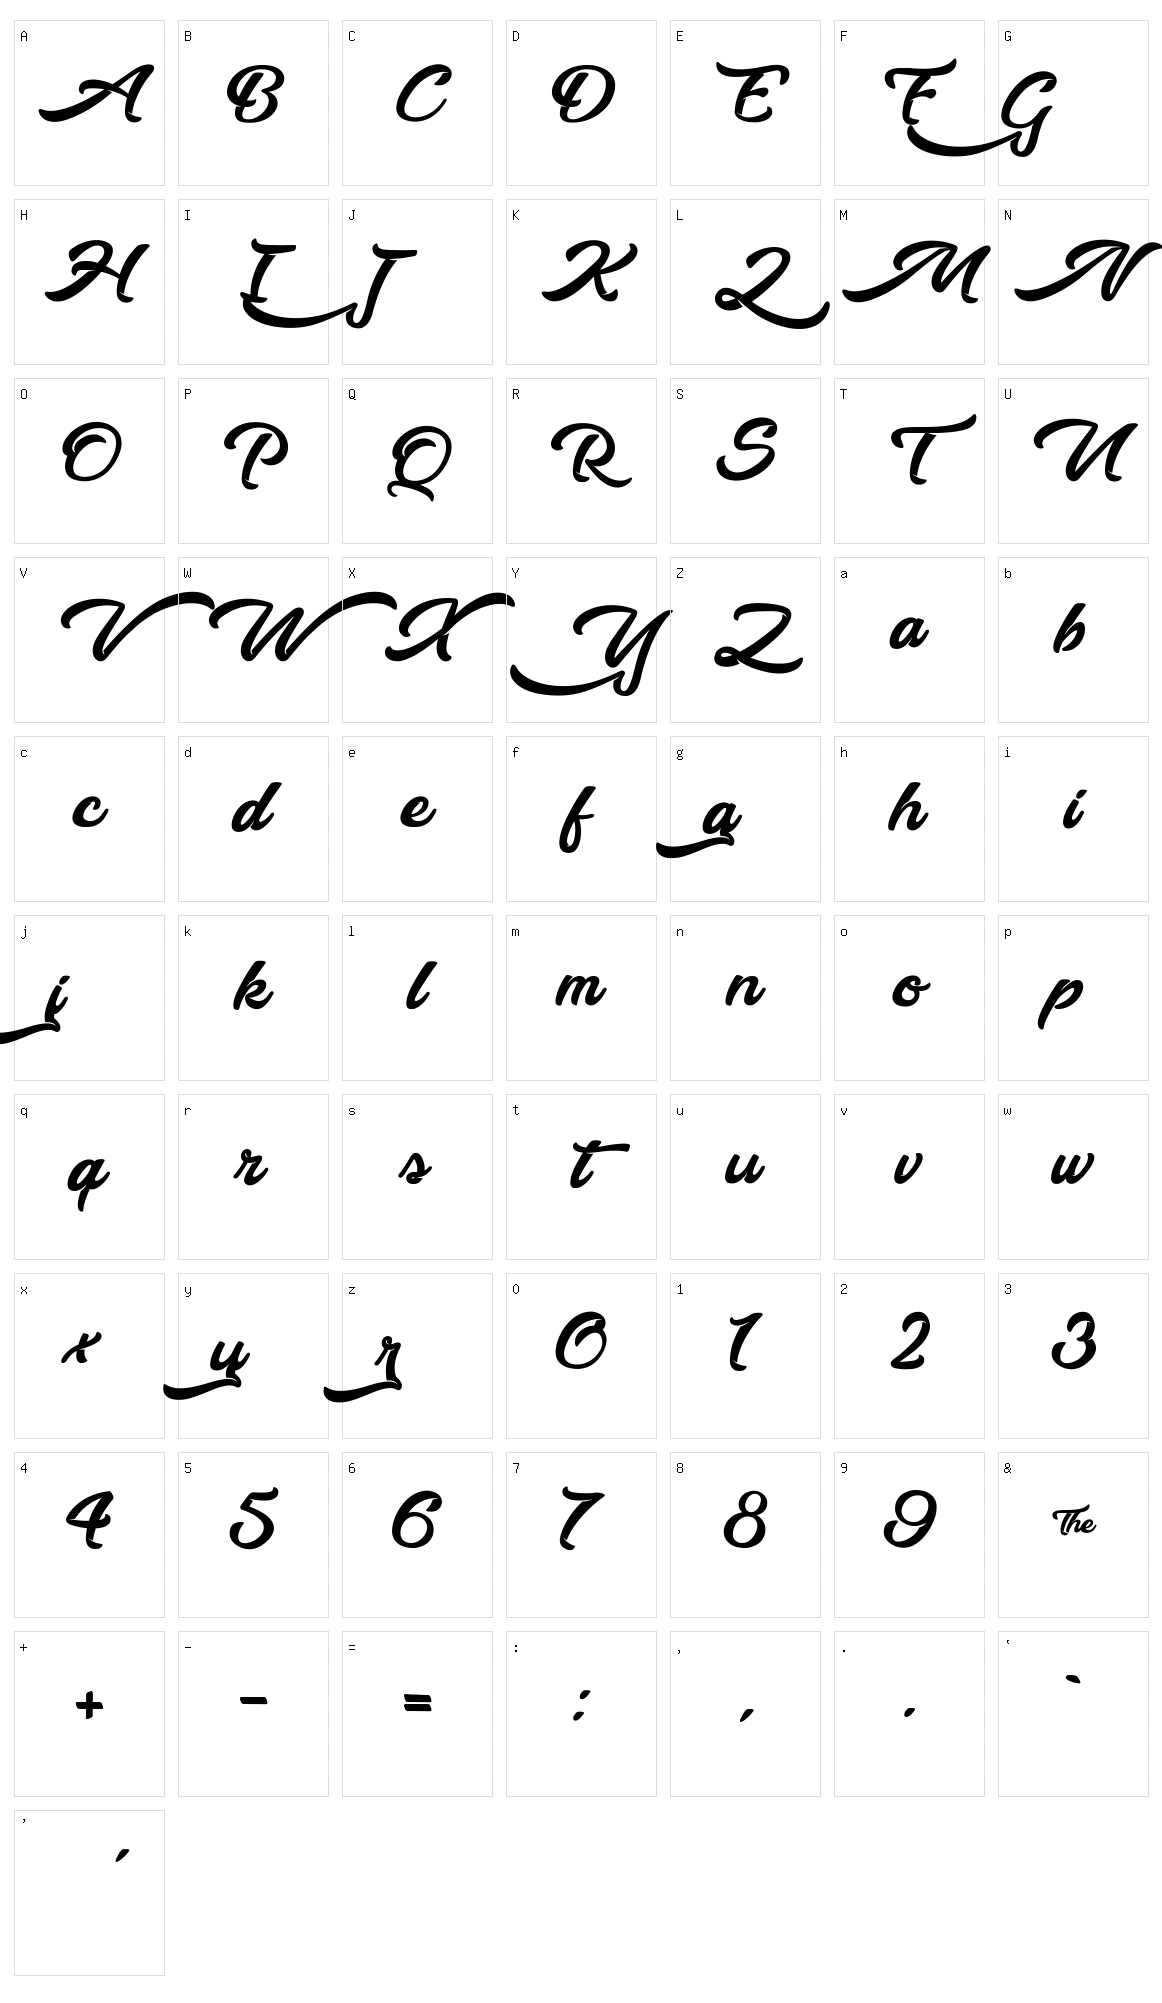 A B C D E F G
A B C D E F G
H I J K L M N
H I J K L M N
O P Q R S T U
O P Q R S T U
V W X Y Z a b
V W X Y Z a b
c d e f g h i
c d e f g h i
j k l m n o p
j k l m n o p
q r s t u v w
q r s t u v w
x y z 0 1 2 3
x y z 0 1 2 3
4 5 6 7 8 9 &
4 5 6 7 8 9 The
+ - = : , . ‘
+ - = : , . `
’
’